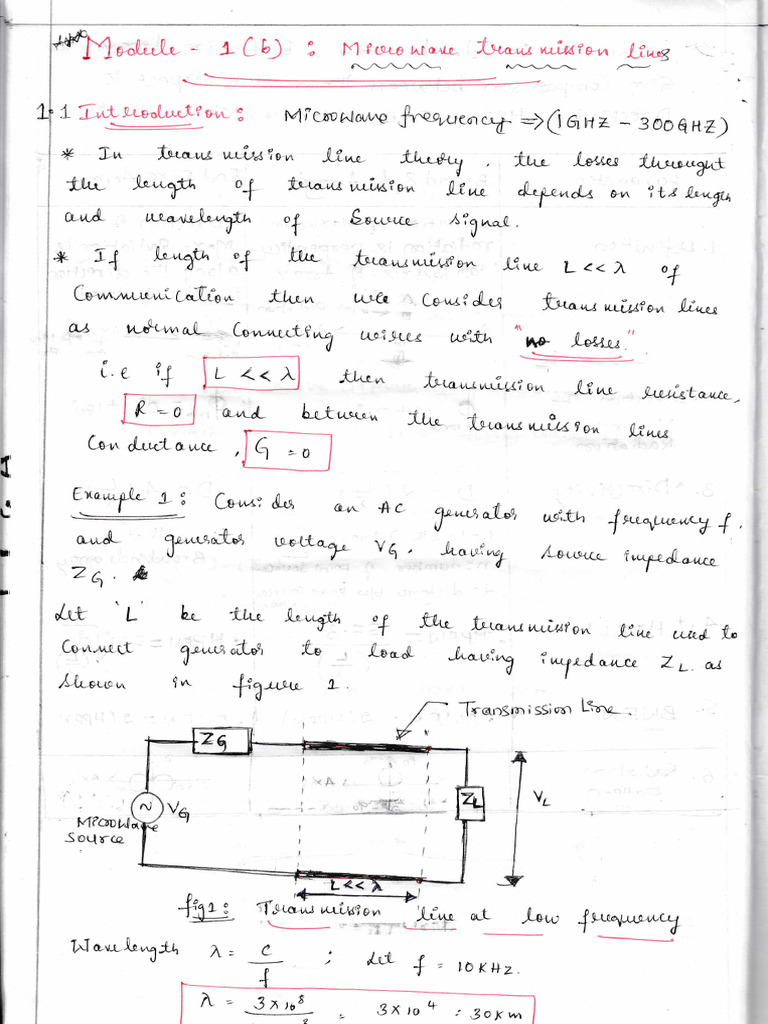 Module - 1(b) : Microwave transmission lines
1.1 Introduction : Microwave frequency ⇒ (1GHZ - 300GHZ)
* In transmission line theory, the losses throught
the length of transmission line depends on its length
and wavelength of Source signal.
* If length of the transmission line L << λ of
Communication then we consider transmission lines
as normal connecting wires with "no losses."
i.e if L << λ then transmission line resistance,
R = 0 and between the transmission lines
Conductance, G = 0
Example 1 : Consider an AC generator with frequency f,
and generator voltage VG, having source impedance
ZG.
Let 'L' be the length of the transmission line used to
connect generator to load having impedance ZL. as
shown in figure 1.
Transmission Line.
ZG
VG
ZL
VL
Microwave
Source
L << λ
fig1: Transmission line at low frequency
Wavelength λ = c/f ; Let f = 10KHZ.
λ = 3 x 10^8 = 3 x 10^4 : 30Km